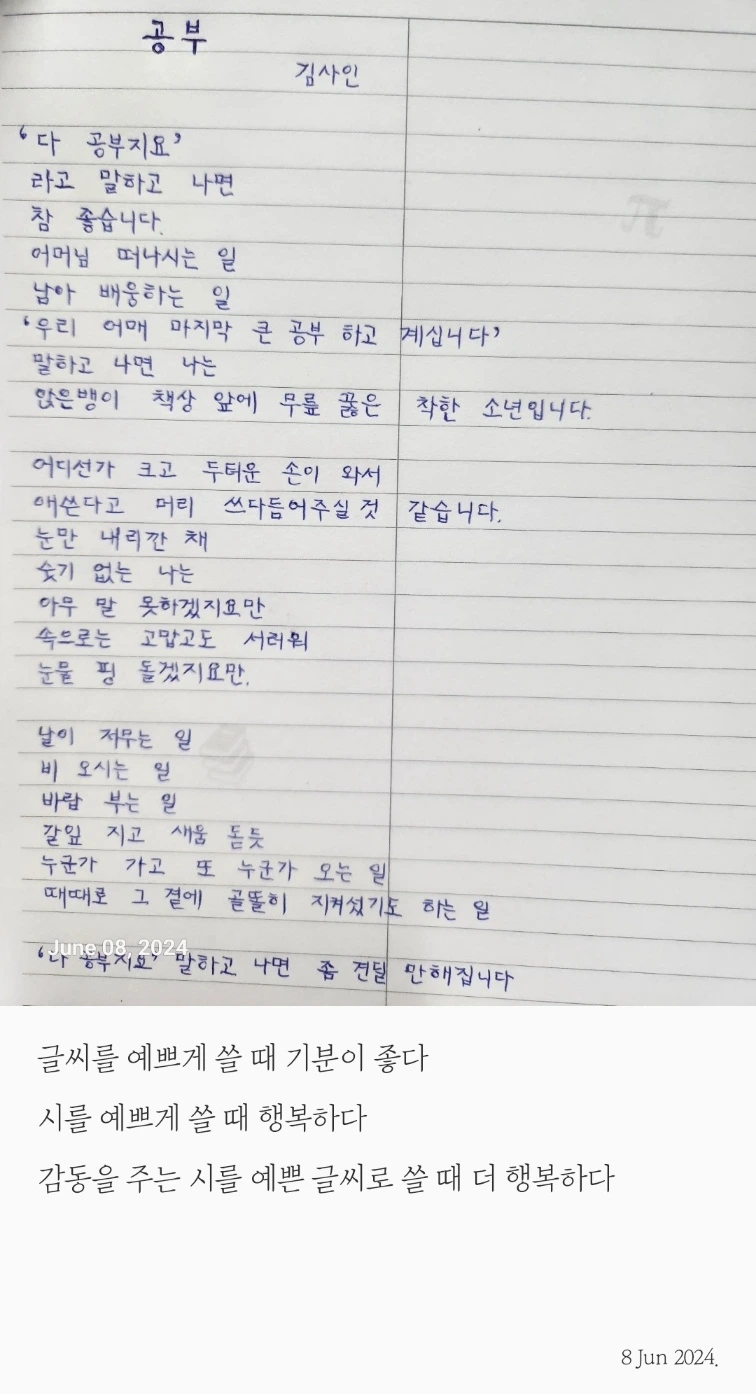 공부
김사인
‘다 공부지요’
라고 말하고 나면
참 좋습니다.
어머님 떠나시는 일
남아 배웅하는 일
‘우리 어매 마지막 큰 공부 하고 계십니다’
말하고 나면 나는
앉은뱅이 책상 앞에 무릎 꿇은 착한 소년입니다.
어디선가 크고 두터운 손이 와서
애쓴다고 머리 쓰다듬어주실 것 같습니다.
눈만 내리깐 채
숫기 없는 나는
아무 말 못하겠지요만
속으로는 고맙고도 서러워
눈물 핑 돌겠지요만.
날이 저무는 일
비 오시는 일
바람 부는 일
갈잎 지고 새움 돋듯
누군가 가고 또 누군가 오는 일
때때로 그 곁에 골똘히 지켜섰기도 하는 일
June 08, 2024
‘다 공부지요’ 말하고 나면 좀 견딜 만해집니다
글씨를 예쁘게 쓸 때 기분이 좋다
시를 예쁘게 쓸 때 행복하다
감동을 주는 시를 예쁜 글씨로 쓸 때 더 행복하다
8 Jun 2024.